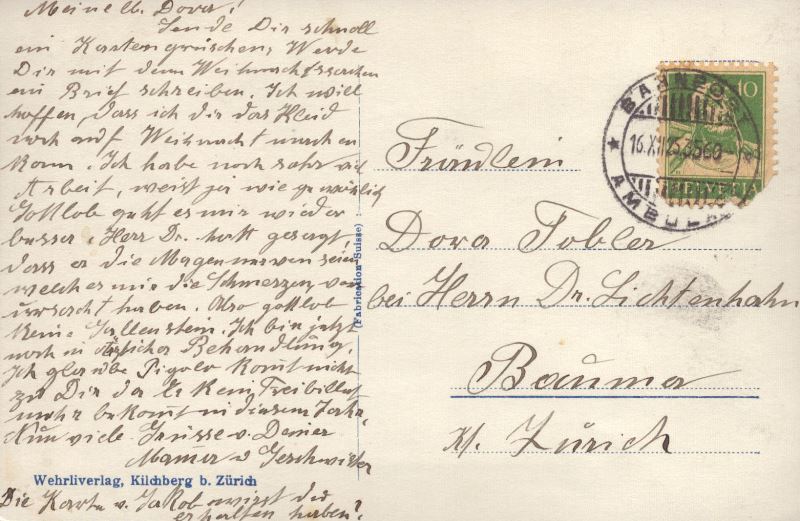 Meine lb. Dora!
Sende Dir schnell
ein Kartengrüschen, Werde
Dir mit dem Weihnachtssachen
ein Brief schreiben. Ich will
hoffen, dass ich dir das Kleid
noch auf Weihnacht machen
kann. Ich habe noch sehr viel
Arbeit, weist ja wie gewöhnlich
Gottlob geht es mir wieder
besser. Herr Dr. hatt gesagt,
dass er die Magennerven seien
welch er mir die Schmerzen ver-
ursacht haben. Also gottlob
keine Gallenstein. Ich bin jetzt
noch in ärtzlicher Behandlung.
Ich glaube Pigolo komt nicht
zu Dir da Er kein Freibillet
mehr bekomt in diesem Jahr.
Nun viele Grüsse v. Deiner
Mamer u Geschwister
Wehrliverlag, Kilchberg b. Zürich
Die Karte v. Jakob wirst du
erhalten haben?
(Fabrication Suisse)
10
BAHNPOST
16.XII.25. 3560
AMBULANT
HELVETIA
Fräulein
Dora Tobler
bei Herrn Dr. Lichtenhahn
Bauma
Kt. Zürich